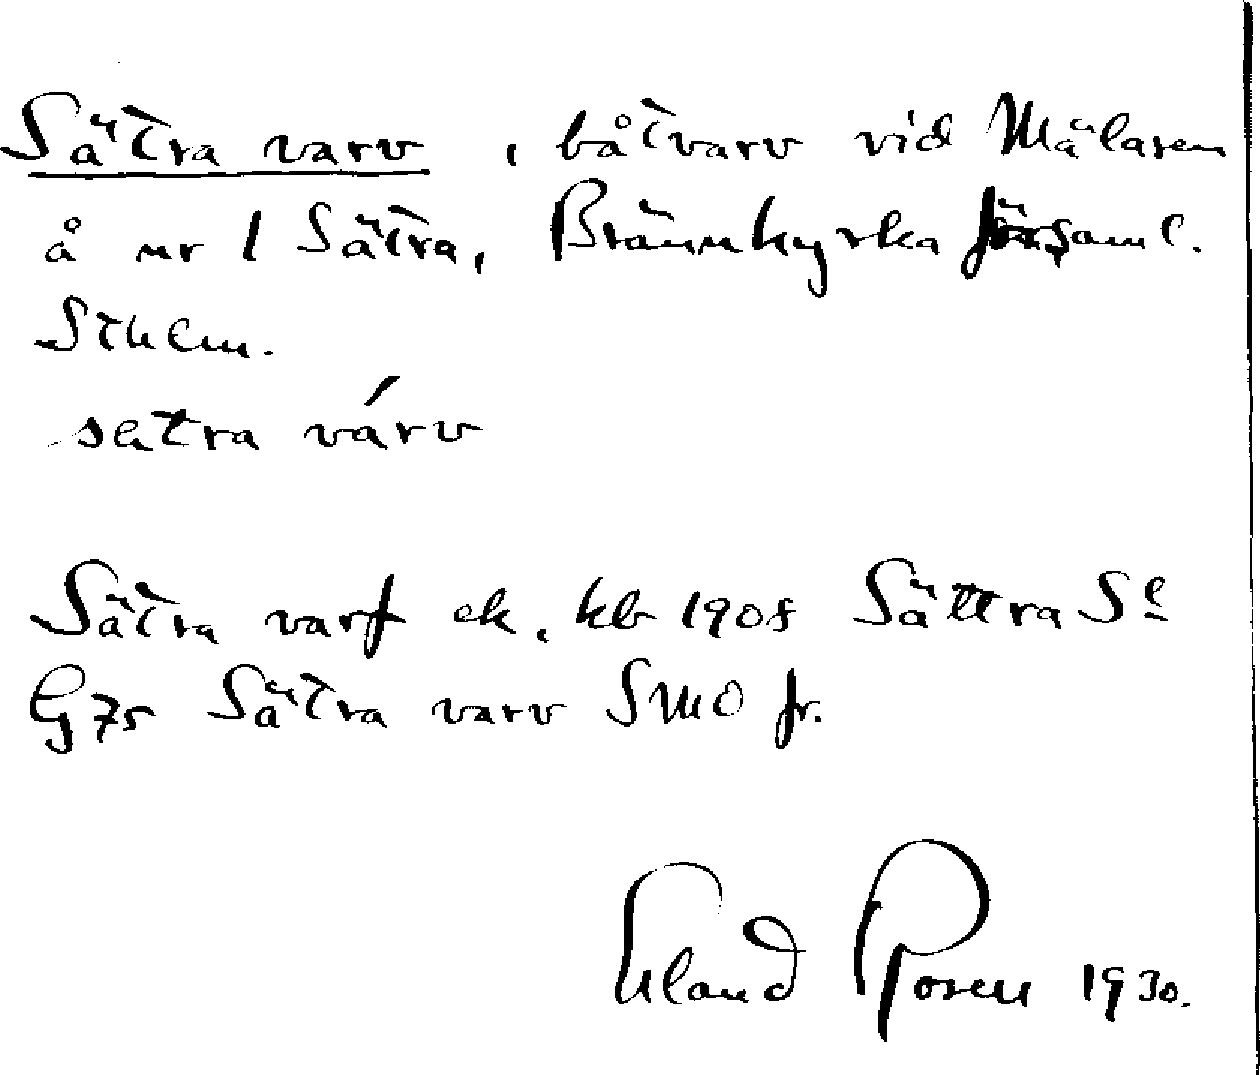 Sätra varv, båtvarv vid Mälaren
å nr 1 Sätra, Brännkyrka församl.
Sthlm.
sätra várv
Sätra varf ek. kb 1908 Sättra Sl
G 75 Sätra varv SMO fr.
Erland Rosen 1930.